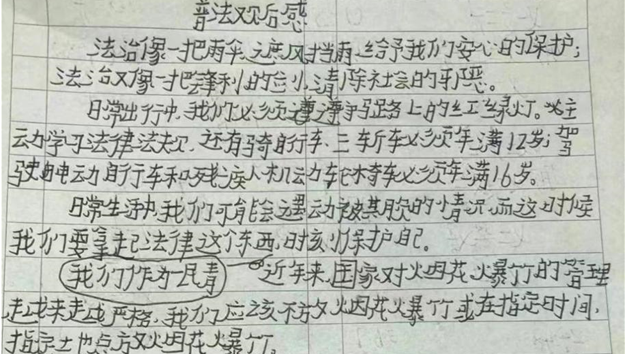 普法观后感
法治像一把雨伞,遮风挡雨给予我们安心的保护;
法治又像一把锋利的剑,清除社会的邪恶。
日常出行中,我们必须遵守马路上的红绿灯。主
动学习法律法规,还有骑自行车、三轮车必须年满12岁;驾
驶电动自行车和残疾人机动车轮椅车必须年满16岁。
日常生活中,我们可能会遇到被欺负的情况,而这时候
我们要拿起法律这个东西,时刻保护自己。
我们作为一民青 近年来,国家对火烟花火爆竹的管理
越来越严格,我们应该不放火烟花火爆竹或在指定时间,
指定地点放火烟花火爆竹。